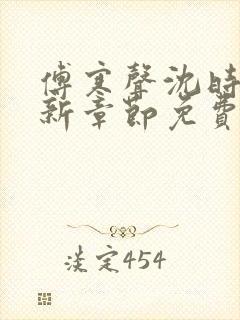 傅寒聲沈時
新章節免費
淡定454